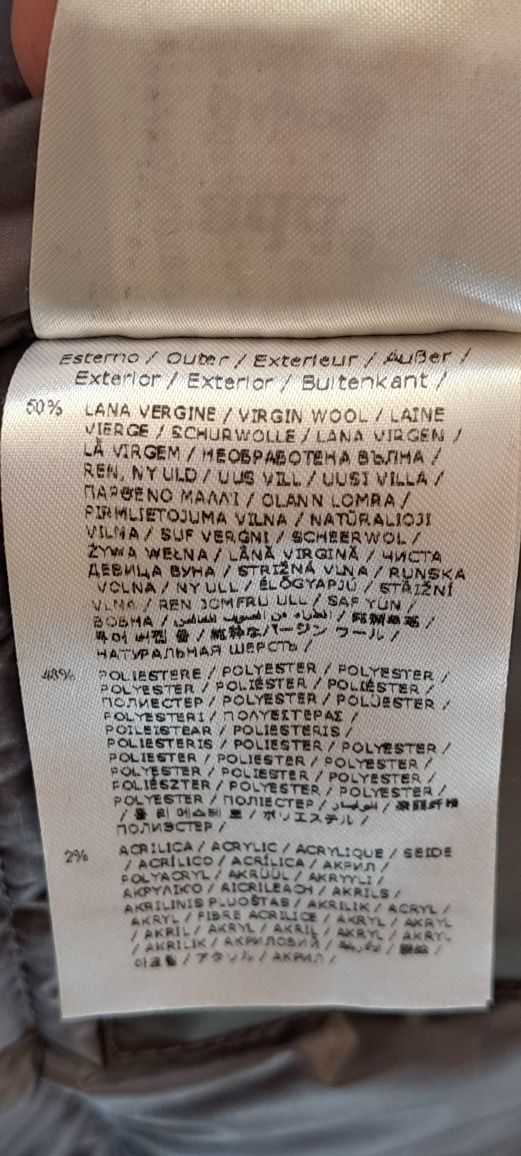 Esterno / Outer / Exterieur / Außer /
Exterior / Exterior / Buitenkant /
50% LANA VERGINE / VIRGIN WOOL / LAINE
VIERGE / SCHURWOLLE / LANA VIRGEN /
LÃ VIRGEM / НЕОБРАБОТЕНА ВЪЛНА /
REN, NY ULD / UUS VILL / UUSI VILLA /
ΠΑΡΘΕΝΟ ΜΑΛΛΙ / OLANN LOMRA /
PIRMLIETOJUMA VILNA / NATŪRALIOJI
VILNA / SUF VERGNI / SCHEERWOL /
ŻYWA WEŁNA / LÂNĂ VIRGINĂ / ЧИСТА
ДЕВИЦА ВУНА / STRIŽNÁ VLNA / RUNSKA
VOLNA / NY ULL / ÉLŐGYAPJÚ / STŘIŽNÍ
VLNA / REN JOMFRU ULL / SAF YÜN /
ВОВНА /
/ 純粋なバージン ウール /
НАТУРАЛЬНАЯ ШЕРСТЬ /
48% POLIESTERE / POLYESTER / POLYESTER /
POLYESTER / POLIÉSTER / POLIÉSTER /
ПОЛИЕСТЕР / POLYESTER /
POLYESTERI / ΠΟΛΥΕΣΤΕΡΑΣ /
POILEISTEAR / POLIESTERIS /
POLIESTERIS / POLIESTER / POLYESTER /
POLIESTER / POLIESTER / POLIESTER /
POLYESTER / POLYESTER / POLYESTER /
POLIÉSZTER / POLYESTER / POLYESTER /
POLYESTER / ПОЛІЕСТЕР / بوليستر /
/ 폴리에스테르 / ポリエステル /
ПОЛИЭСТЕР /
2% ACRILICA / ACRYLIC / ACRYLIQUE / SEIDE
/ ACRÍLICO / ACRÍLICA / АКРИЛ /
POLYACRYL / AKRÜÜL / AKRYYLI /
ΑΚΡΥΛΙΚΟ / AICRILEACH / AKRILS /
AKRILINIS PLUOŠTAS / AKRILIK / ACRYL /
AKRYL / FIBRE ACRILICE / AKRYL / AKRYL
/ AKRIL / AKRYL / AKRIL / AKRYL / AKRYL
/ AKRILIK / АКРИЛОВИЙ /
아크릴 / アクリル / АКРИЛ /